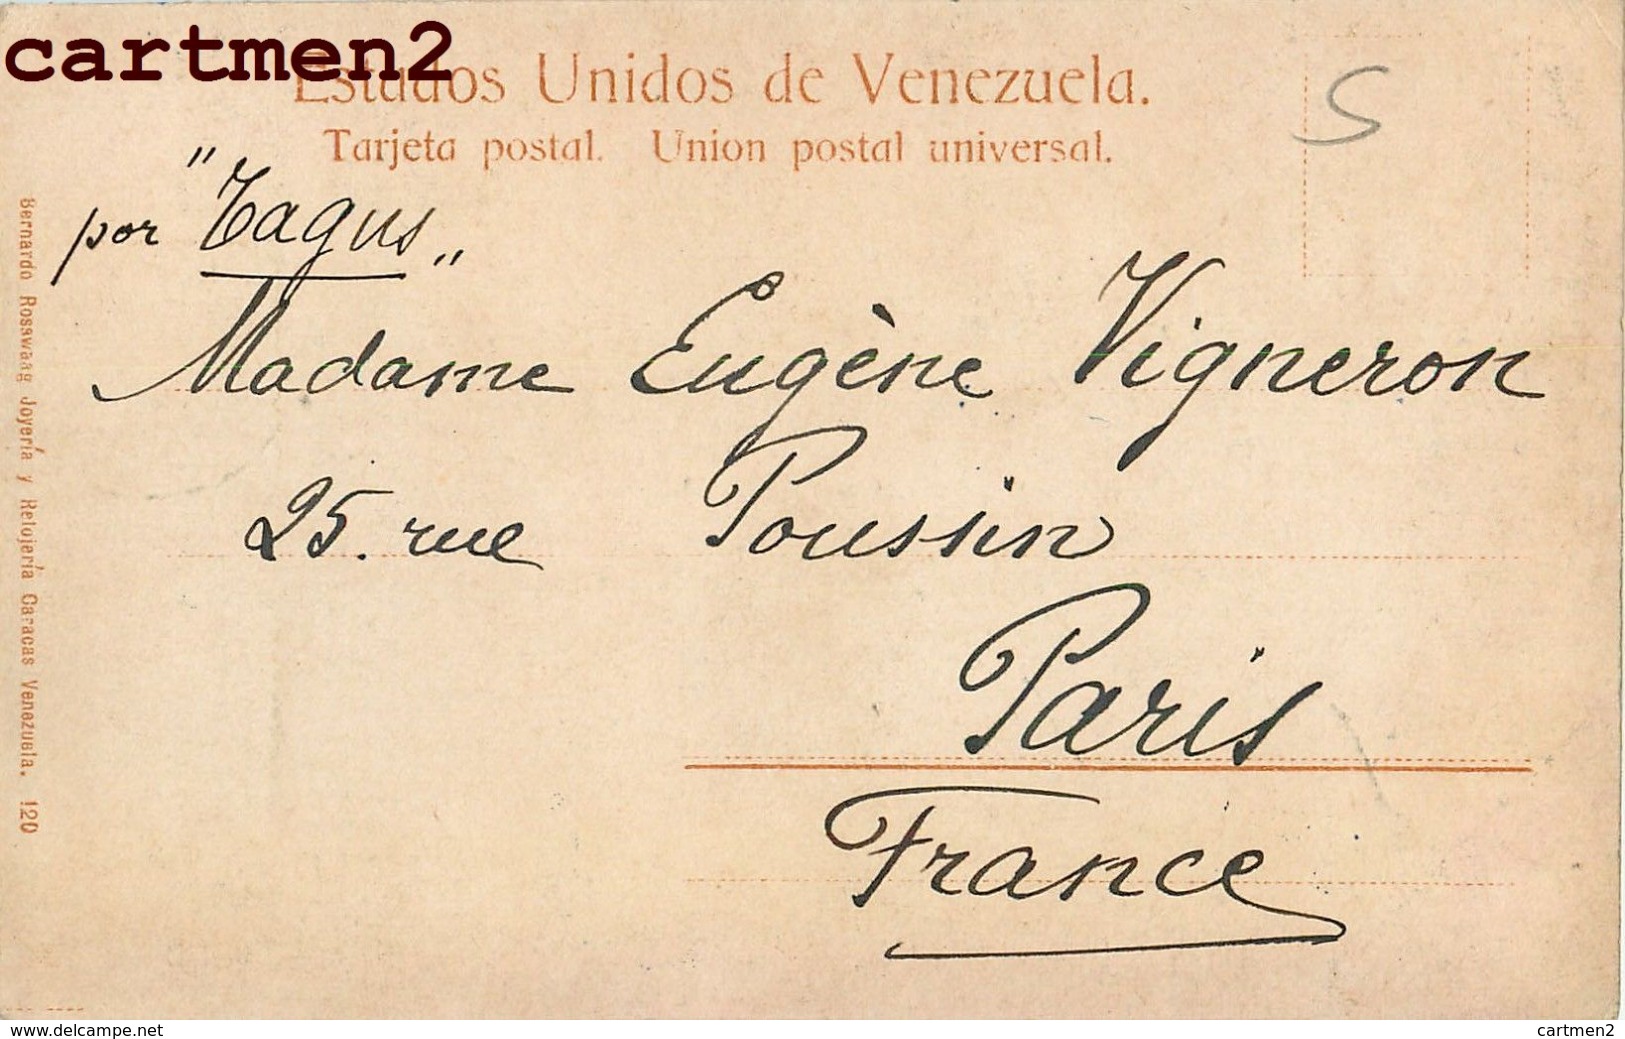 cartmen2
Estados Unidos de Venezuela.
Tarjeta postal. Union postal universal.
S
por "Tagus„
Madame Eugène Vigneron
25. rue Poussin
Paris
France
Bernardo Rosswaag Joyería y Relojería Caracas Venezuela. 120
www.delcampe.net
cartmen2